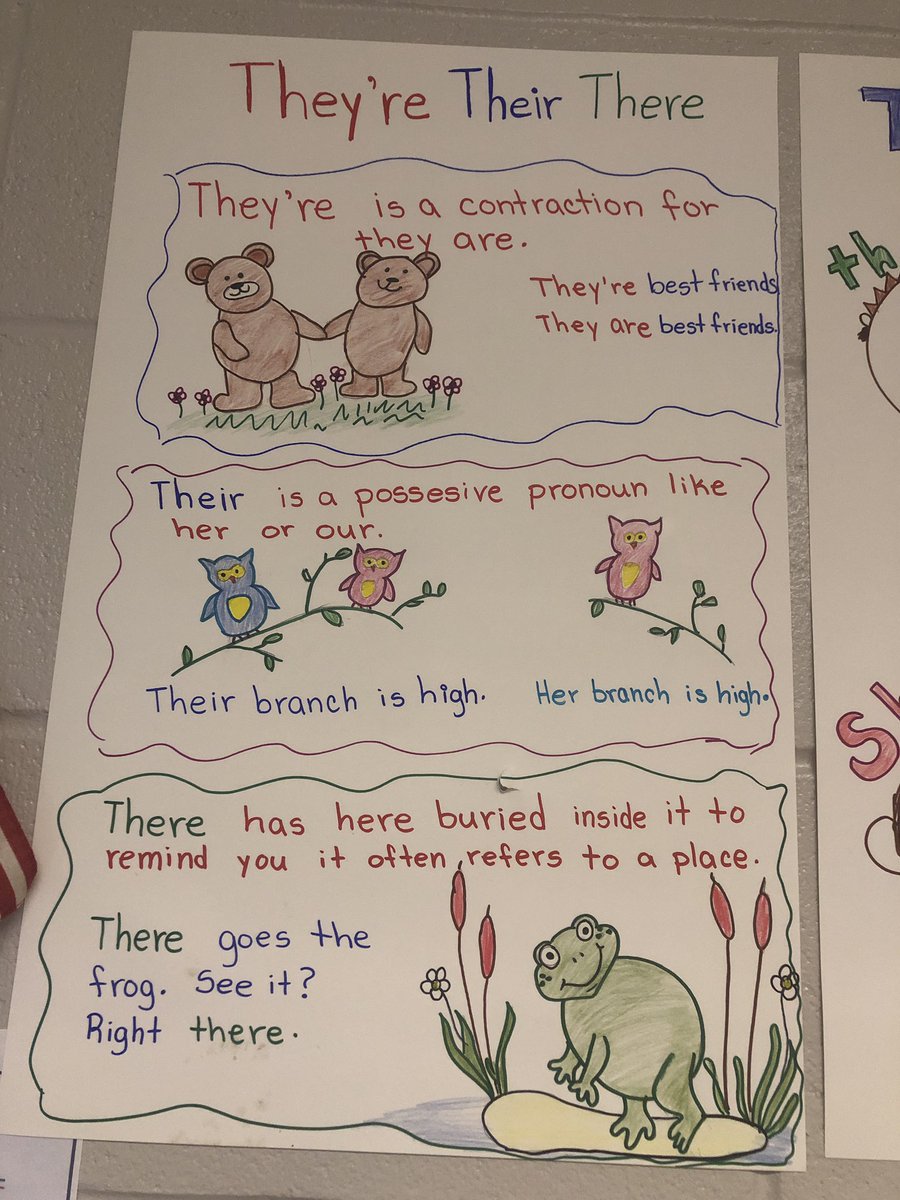 They're Their There
They're is a contraction for
they are.
They're best friends
They are best friends.
Their is a possesive pronoun like
her or our.
Their branch is high.
Her branch is high.
There has here buried inside it to
remind you it often refers to a place.
There goes the
frog. See it?
Right there.
T
th